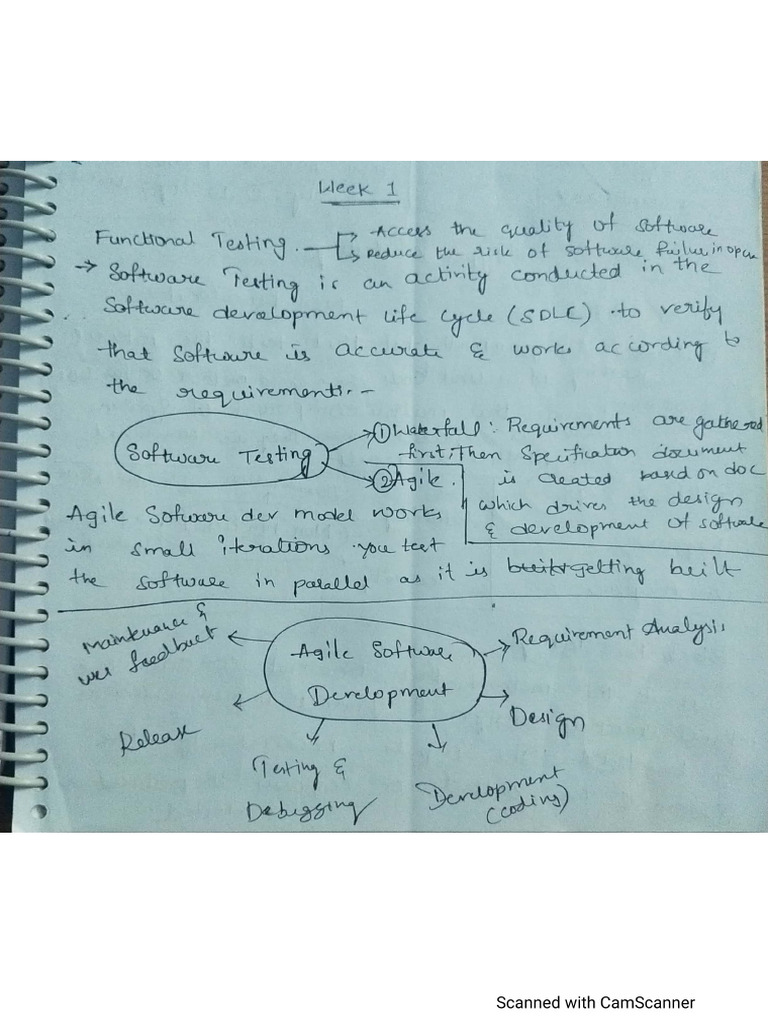 Week 1
Functional Testing. → Access the quality of software
→ Reduce the risk of software failure in open
→ Software Testing is an activity conducted in the
Software development life cycle (SDLC) to verify
that software is accurate & works according to
the requirements. -
Software Testing
① Waterfall: Requirements are gathered
first, Then Specification document
is created based on doc
which drives the design
& development of software
② Agile.
Agile Sofware dev model works
in small iterations. you test
the software in parallel as it is getting built
Agile Software
Development
Requirement Analysis
Design
Development
(coding)
Testing &
Debugging
Release
Maintenance &
user feedback
Scanned with CamScanner